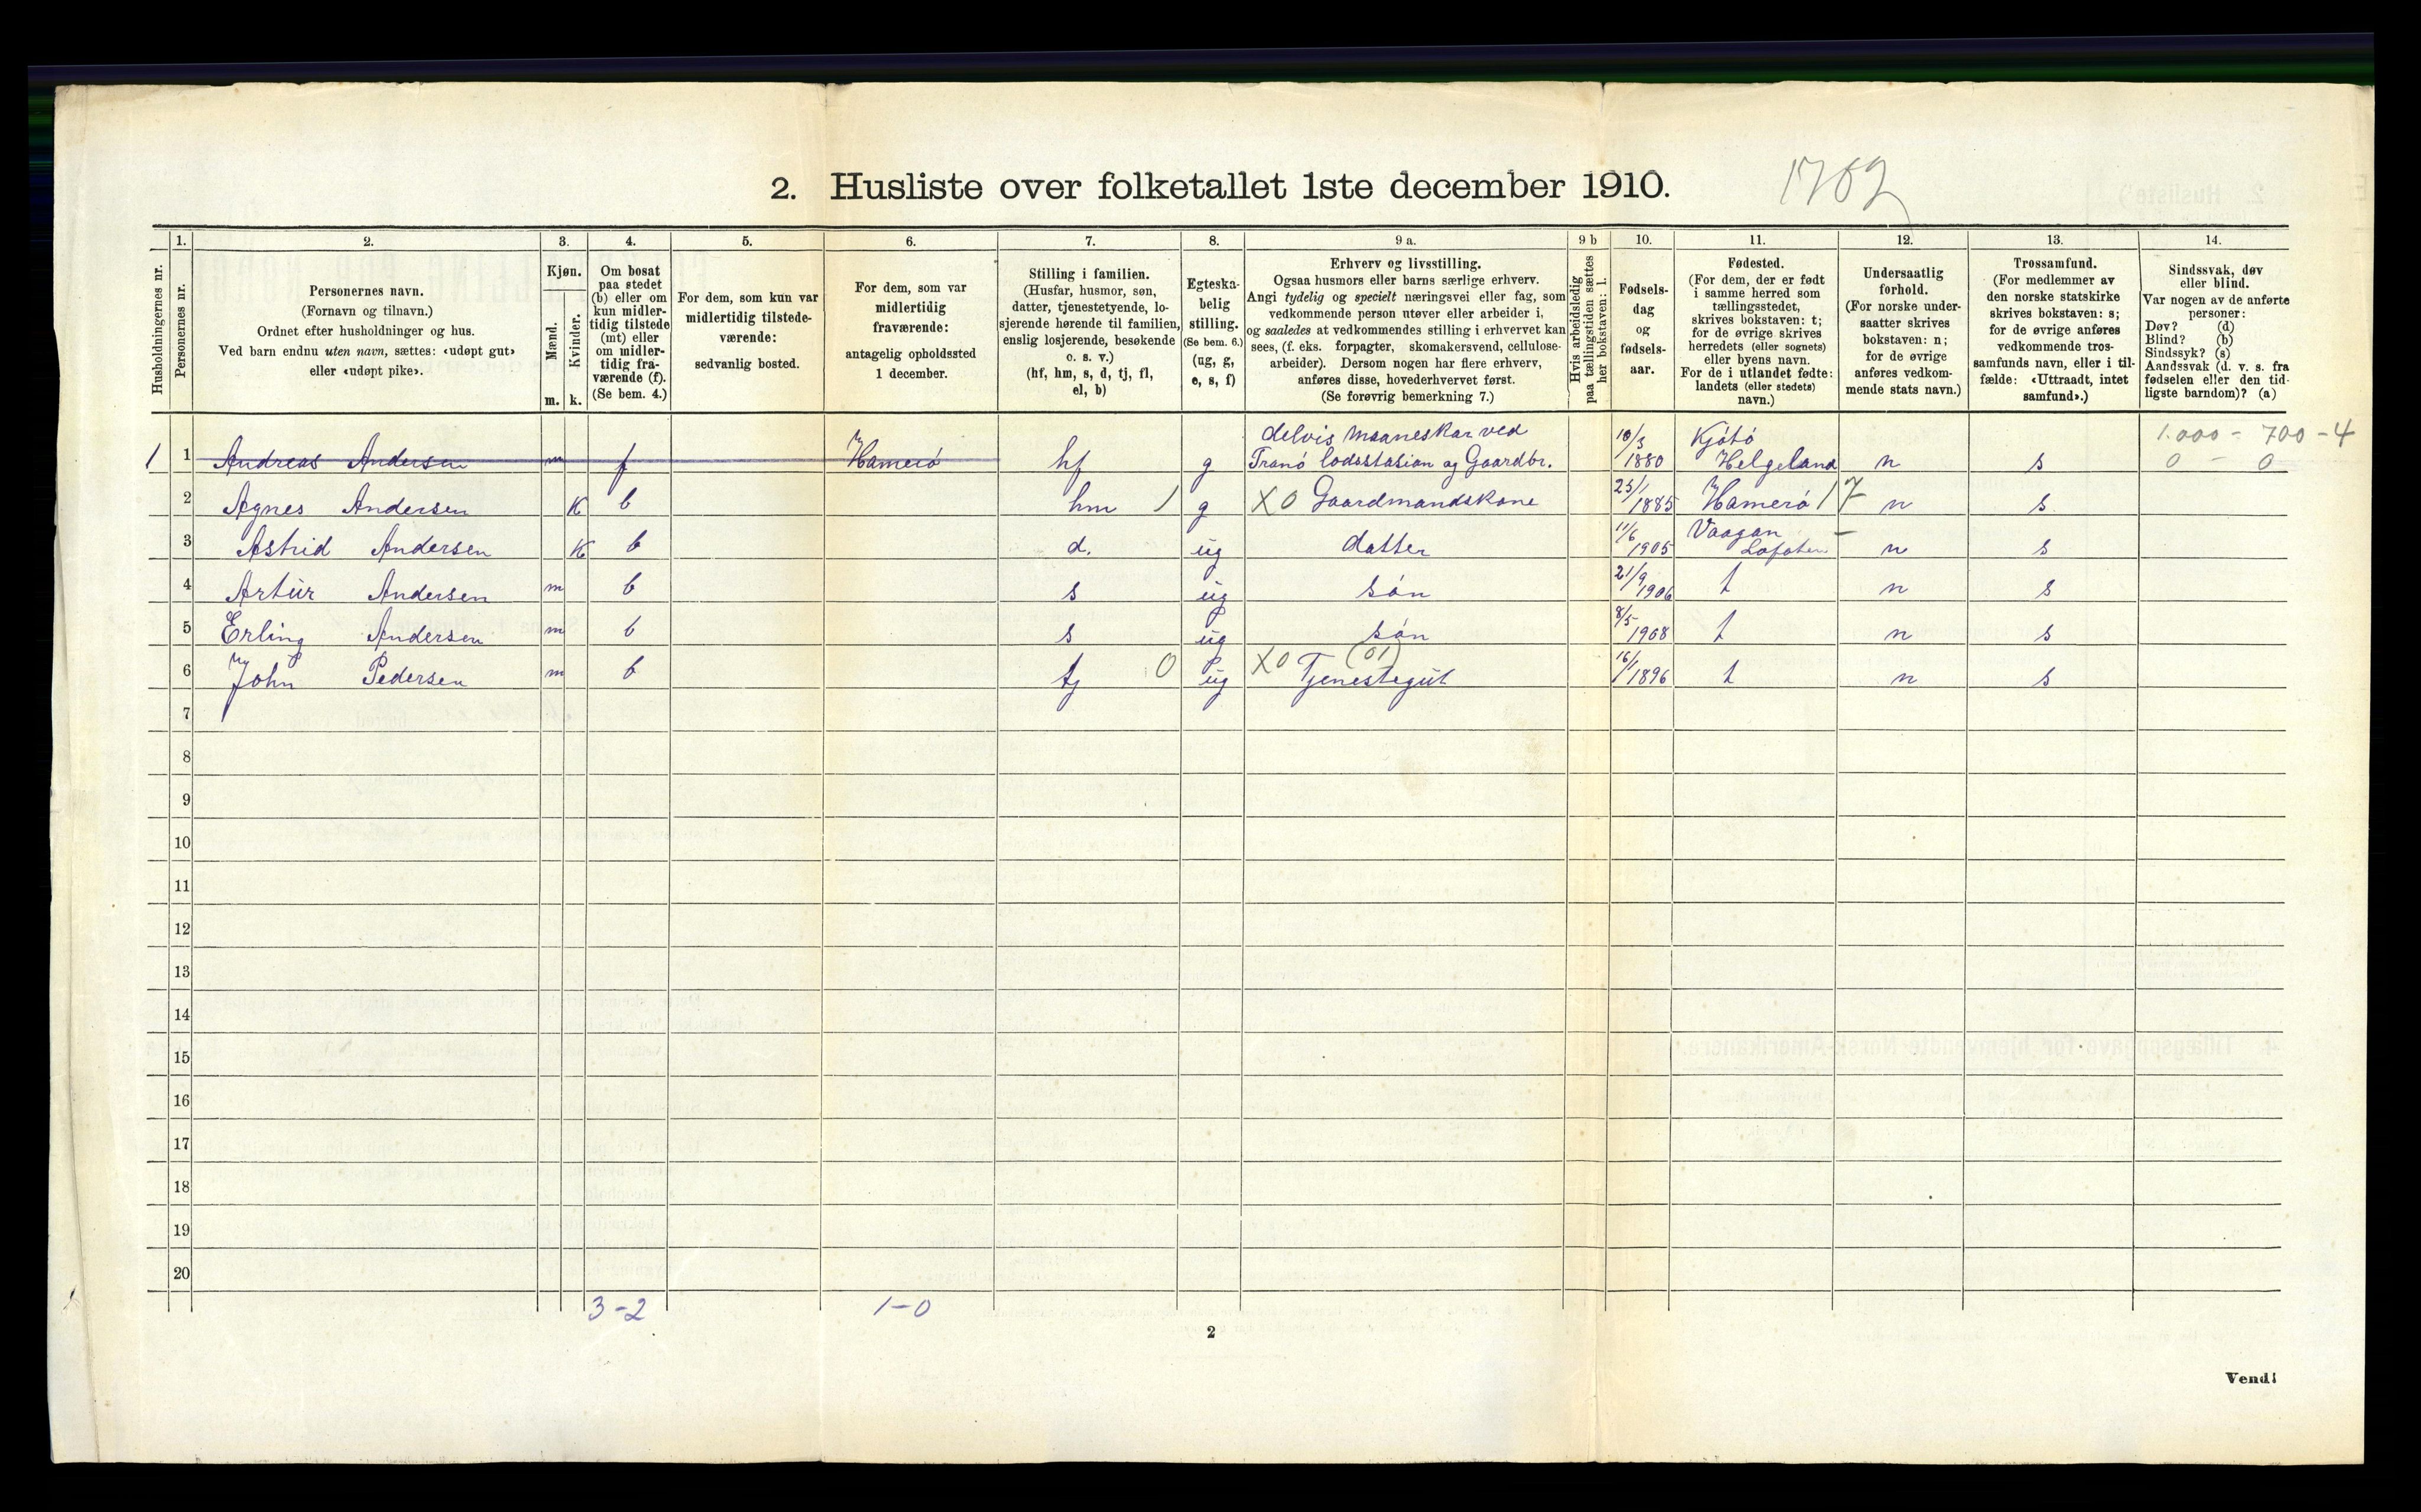 2. Husliste over folketallet 1ste december 1910.
1762
Husholdningernes nr.
1.
Personernes nr.
2.
Personernes navn.
(Fornavn og tilnavn.)
Ordnet efter husholdninger og hus.
Ved barn endnu uten navn, sættes: «udøpt gut»
eller «udøpt pike».
3.
Kjøn.
Mænd.
Kvinder.
m. k.
4.
Om bosat
paa stedet
(b) eller om
kun midler-
tidig tilstede
(mt) eller
om midler-
tidig fra-
værende (f).
(Se bem. 4.)
5.
For dem, som kun var
midlertidig tilstede-
værende:
sedvanlig bosted.
6.
For dem, som var
midlertidig
fraværende:
antagelig opholdssted
1 december.
7.
Stilling i familien.
(Husfar, husmor, søn,
datter, tjenestetyende, lo-
sjerende hørende til familien,
enslig losjerende, besøkende
o. s. v.)
(hf, hm, s, d, tj, fl,
el, b)
8.
Egteska-
belig
stilling.
(Se bem. 6.)
(ug, g,
e, s, f)
9 a.
Erhverv og livsstilling.
Ogsaa husmors eller barns særlige erhverv.
Angi tydelig og specielt næringsvei eller fag, som
vedkommende person utøver eller arbeider i,
og saaledes at vedkommendes stilling i erhvervet kan
sees, (f. eks. forpagter, skomakersvend, cellulose-
arbeider). Dersom nogen har flere erhverv,
anføres disse, hovederhvervet først.
(Se forøvrig bemerkning 7.)
9 b
Hvis arbeidsledig
paa tællingstiden sættes
her bokstaven: l.
10.
Fødsels-
dag
og
fødsels-
aar.
11.
Fødested.
(For dem, der er født
i samme herred som
tællingsstedet,
skrives bokstaven: t;
for de øvrige skrives
herredets (eller sognets)
eller byens navn.
For de i utlandet fødte:
landets (eller stedets)
navn.)
12.
Undersaatlig
forhold.
(For norske under-
saatter skrives
bokstaven: n;
for de øvrige
anføres vedkom-
mende stats navn.)
13.
Trossamfund.
(For medlemmer av
den norske statskirke
skrives bokstaven: s;
for de øvrige anføres
vedkommende tros-
samfunds navn, eller i til-
fælde: «Uttraadt, intet
samfund».)
14.
Sindssvak, døv
eller blind.
Var nogen av de anførte
personer:
Døv? (d)
Blind? (b)
Sindssyk? (s)
Aandssvak (d. v. s. fra
fødselen eller den tid-
ligste barndom)? (a)
delvis maaneskar ved 10/3 Kjøtø 1.000 - 700 - 4
1 1 Andreas Andersen m f Hamerø hf g Tranø lodsstasion og Gaardbr. 1880 Helgeland n s 0 - 0
2 Agnes Andersen K b hm 1 g X0 Gaardmandskone 25/1 1885 Hamerø 17 n s
3 Astrid Andersen K b d. ug datter 11/6 1905 Vaagan Lofoten - n s
4 Artur Andersen m b s ug søn 21/9 1906 t n s
5 Erling Andersen m b s ug søn 8/5 1908 t n s
6 John Pedersen m b tj 0 ug X0 Tjenestegut (01) 16/1 1896 t n s
7
8
9
10
11
12
13
14
15
16
17
18
19
20
3-2 1-0
2
Vend!